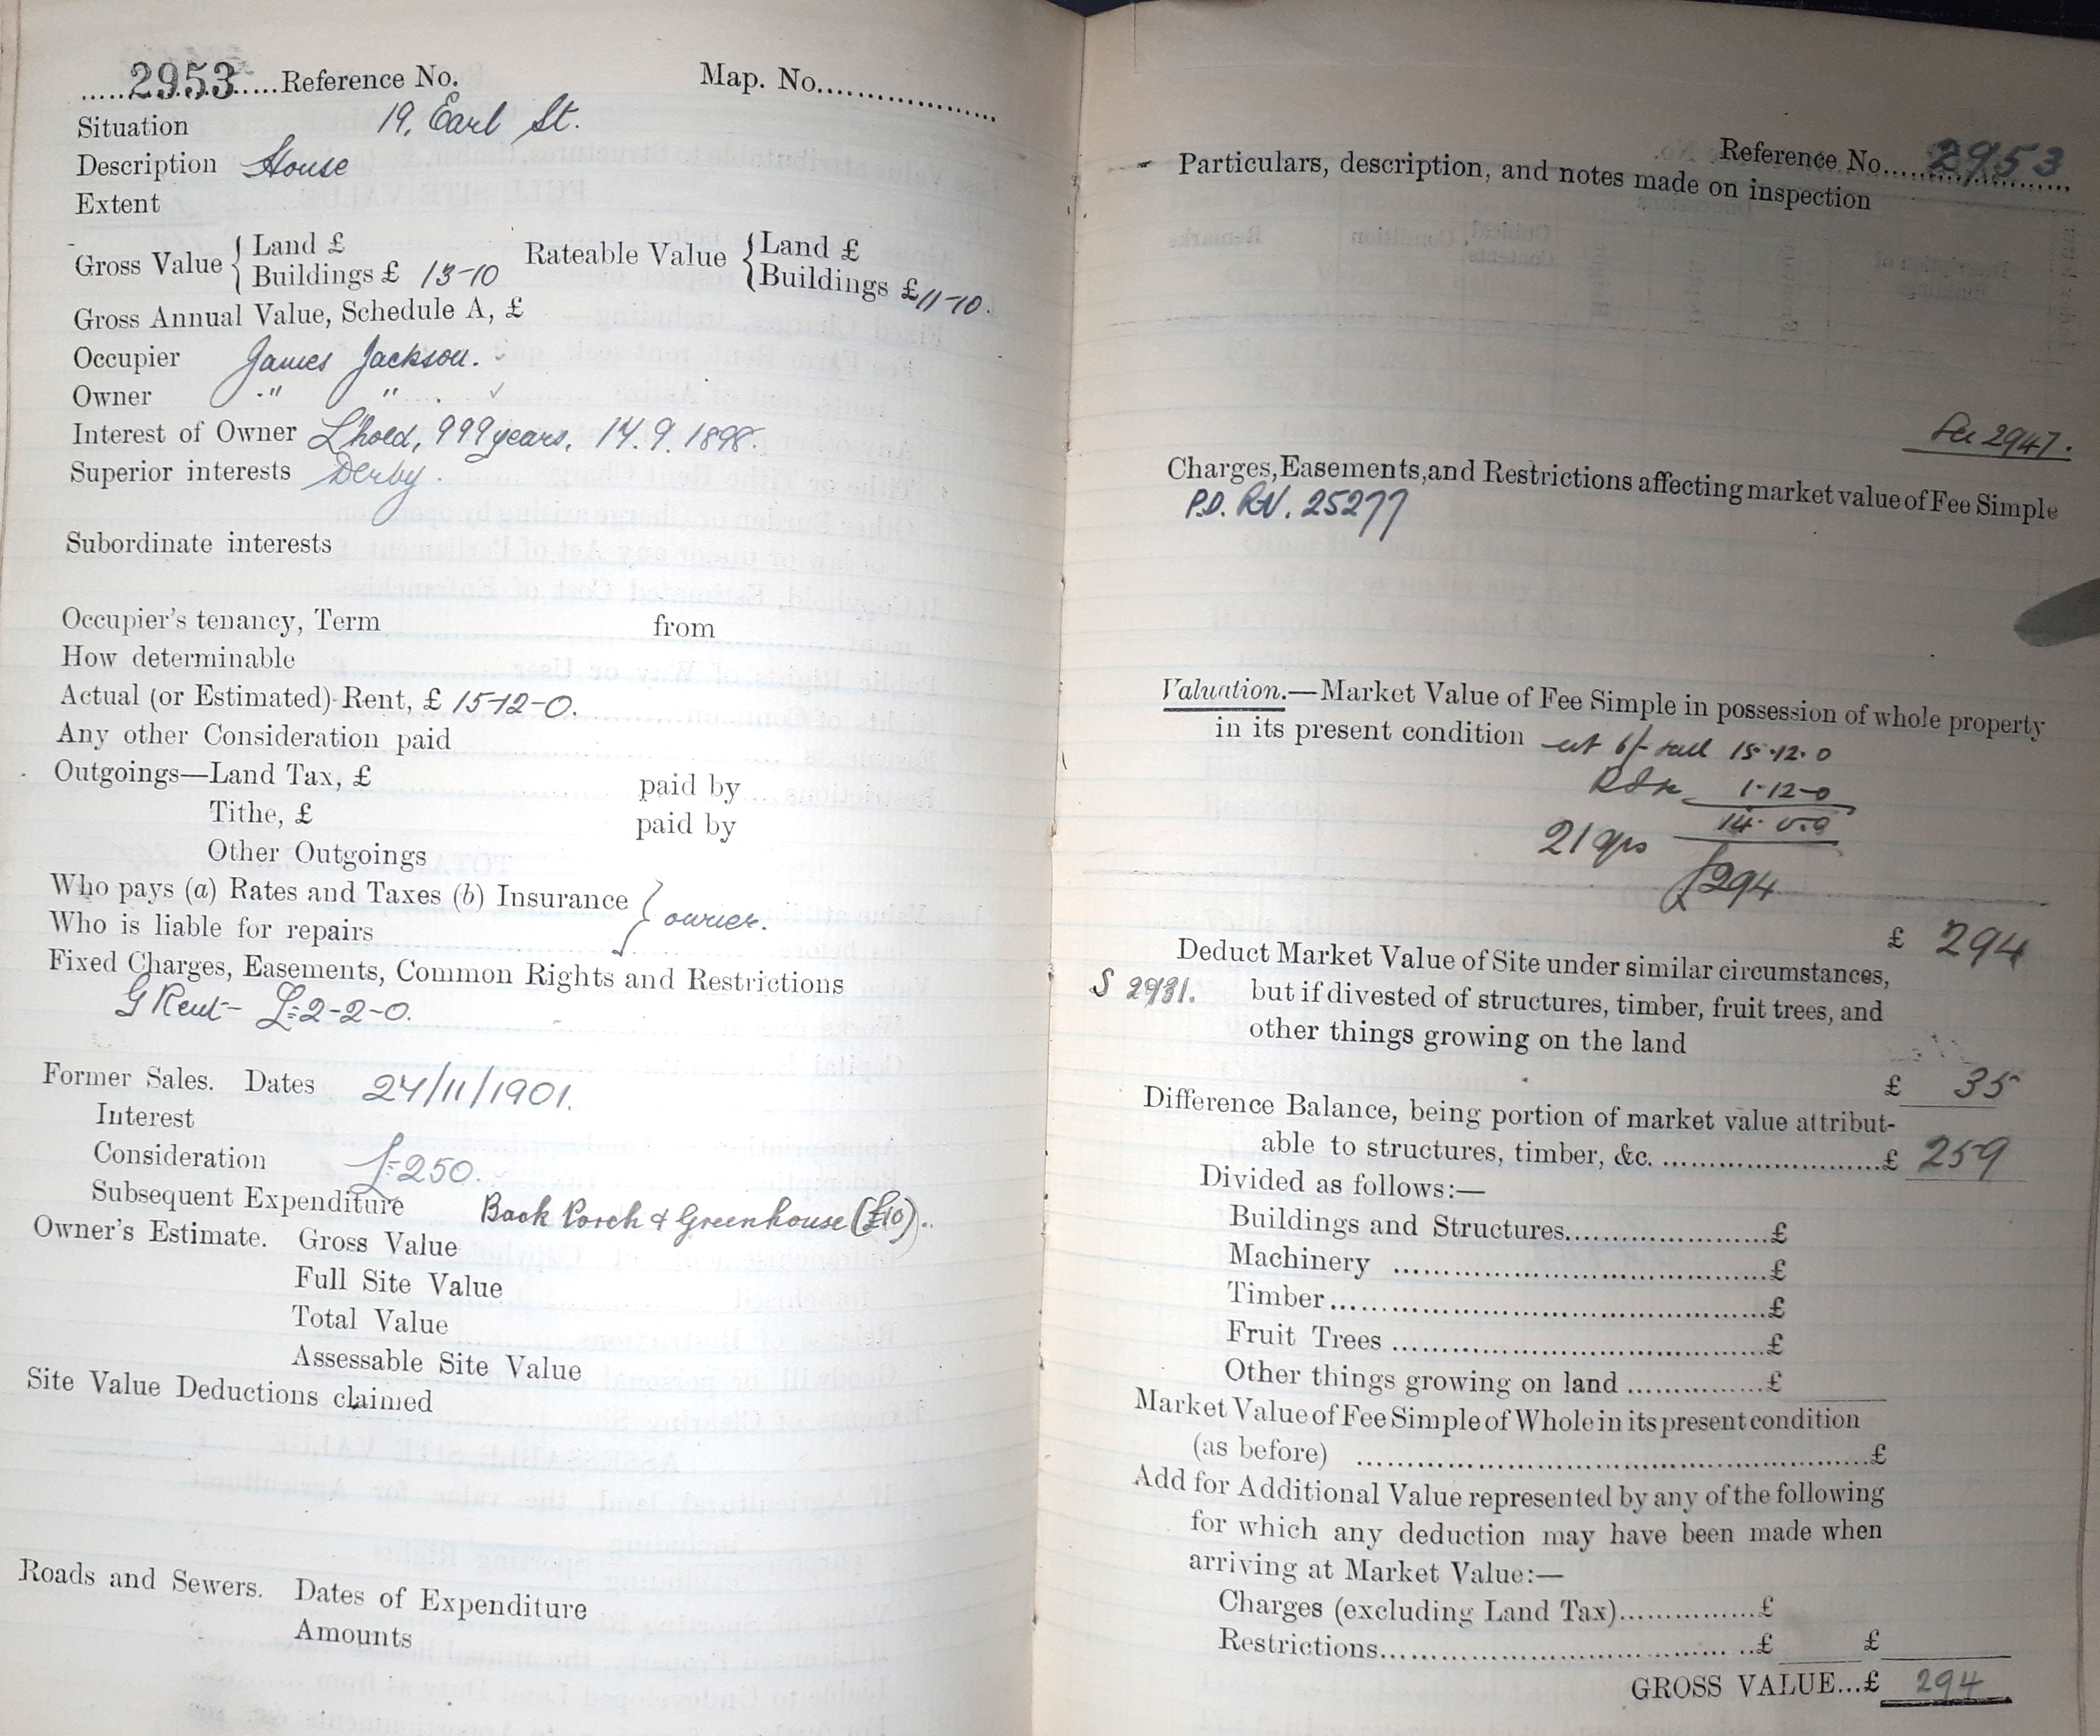 .....2953.....Reference No. Map. No....................
Situation 19, Earl St.
Description House
Extent
Gross Value { Land £ Rateable Value { Land £
Buildings £ 13-10 Buildings £ 11-10.
Gross Annual Value, Schedule A, £
Occupier James Jackson.
Owner " "
Interest of Owner L'hold, 999 years, 14.9.1898.
Superior interests Derby.
Subordinate interests
Occupier's tenancy, Term from
How determinable
Actual (or Estimated) Rent, £ 15-12-0.
Any other Consideration paid
Outgoings—Land Tax, £ paid by
Tithe, £ paid by
Other Outgoings
Who pays (a) Rates and Taxes (b) Insurance } owner.
Who is liable for repairs
Fixed Charges, Easements, Common Rights and Restrictions
G Rent - £=2-2-0.
Former Sales. Dates 24/11/1901.
Interest
Consideration £=250.
Subsequent Expenditure Back Porch & Greenhouse (£10).
Owner's Estimate. Gross Value
Full Site Value
Total Value
Assessable Site Value
Site Value Deductions claimed
Roads and Sewers. Dates of Expenditure
Amounts
Reference No. 2953
Particulars, description, and notes made on inspection
See 2947.
Charges, Easements, and Restrictions affecting market value of Fee Simple
P.D. RV. 25277
Valuation.—Market Value of Fee Simple in possession of whole property
in its present condition 6/- 15.12.0
1-12-0
14.0.0
21 yrs
£294
£ 294
Deduct Market Value of Site under similar circumstances,
S 2931. but if divested of structures, timber, fruit trees, and
other things growing on the land
£ 35
Difference Balance, being portion of market value attribut-
able to structures, timber, &c. ........................£ 259
Divided as follows:—
Buildings and Structures........................£
Machinery ........................£
Timber........................£
Fruit Trees ........................£
Other things growing on land ...............£
Market Value of Fee Simple of Whole in its present condition
(as before) ........................£
Add for Additional Value represented by any of the following
for which any deduction may have been made when
arriving at Market Value:—
Charges (excluding Land Tax)...............£
Restrictions........................£ £
GROSS VALUE...£ 294